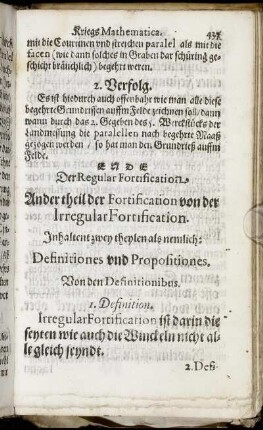 Kriegs Mathematica. 437
mit die Courtinen vnd streichen paralel als mit die
facen (wie dann solches in Graben dar schüring ge-
schicht bräuchlich) begehrt weren.
2. Verfolg.
Es ist hiedurch auch offenbahr wie man alle diese
begehrte Grundrissen auffm Felde zeichnen soll / dann
wann durch das 2. Gegeben des 5. Werckstücks der
Landmessung die paralellen nach begehrte Maaß
gezogen werden / so hat man den Grundrieß auffm
Felde.
ENDE
Der Regular Fortification.
Ander theil der Fortification von der
Irregular Fortification.
Inhaltent zwey theylen als nemlich:
Definitiones vnd Propositiones.
Von den Definitionibus.
1. Definition.
Irregular Fortification ist darin die
seyten wie auch die Winckeln nicht al-
le gleich seyndt.
2. Defi-